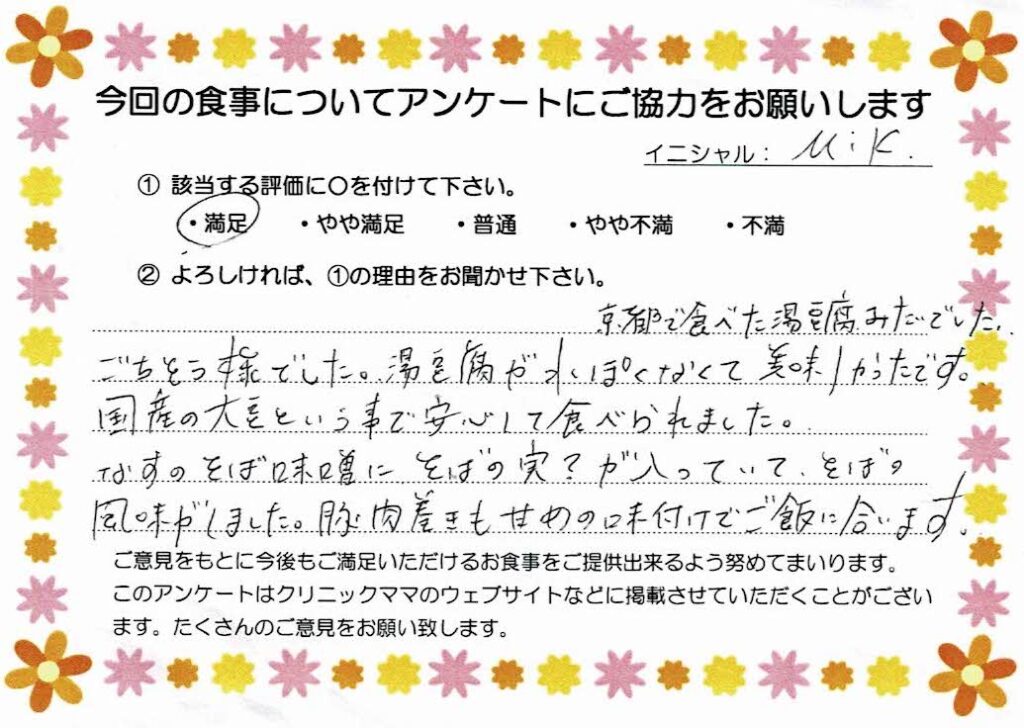 今回の食事についてアンケートにご協力をお願いします
イニシャル： M i K.
① 該当する評価に〇を付けて下さい。
・満足 ・やや満足 ・普通 ・やや不満 ・不満
② よろしければ、①の理由をお聞かせ下さい。
京都で食べた湯豆腐みたいでした。
ごちそう様でした。湯豆腐が水っぽくなくて美味しかったです。
国産の大豆という事で安心して食べられました。
なすのそば味噌にそばの実？が入っていて、そばの
風味がしました。豚肉巻きも甘めの味付けでご飯に合います。
ご意見をもとに今後もご満足いただけるお食事をご提供出来るよう努めてまいります。
このアンケートはクリニックママのウェブサイトなどに掲載させていただくことがござい
ます。たくさんのご意見をお願い致します。